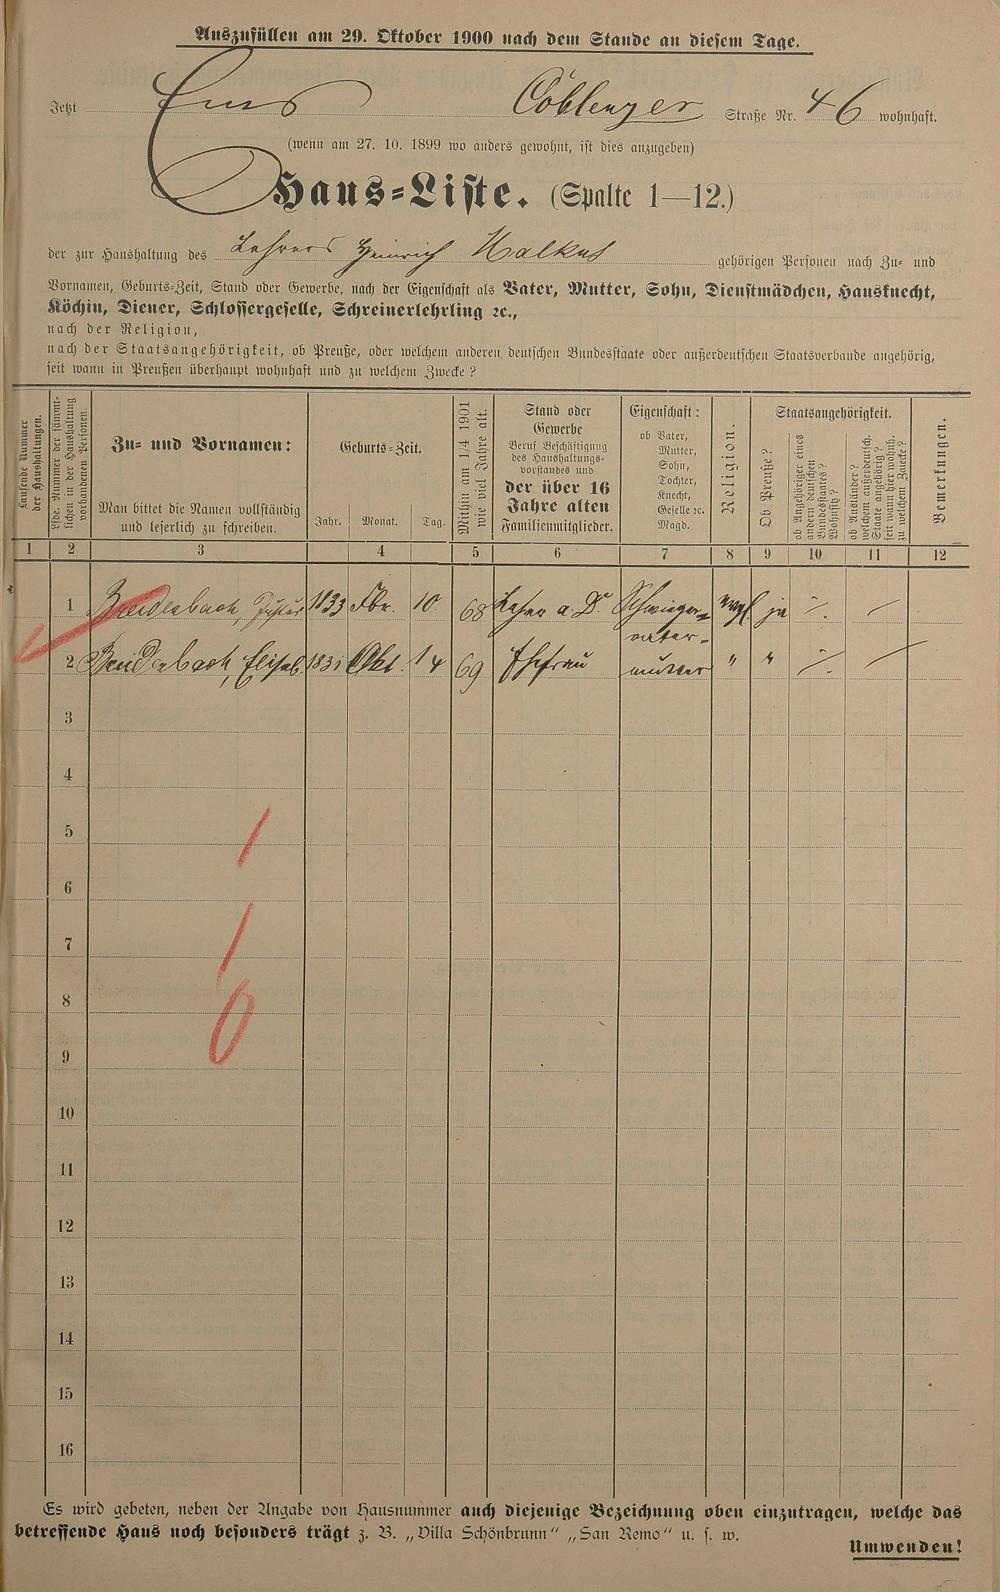 Auszufüllen am 29. Oktober 1900 nach dem Stande an diesem Tage.
Jetzt Ems Coblenzer Straße Nr. 46 wohnhaft.
(wenn am 27. 10. 1899 wo anders gewohnt, ist dies anzugeben)
Haus=Liste. (Spalte 1—12.)
der zur Haushaltung des Lehrers Heinrich Malkus gehörigen Personen nach Zu= und
Vornamen, Geburts=Zeit, Stand oder Gewerbe, nach der Eigenschaft als Vater, Mutter, Sohn, Dienstmädchen, Hausknecht,
Köchin, Diener, Schlossergeselle, Schreinerlehrling ꝛc.,
nach der Religion,
nach der Staatsangehörigkeit, ob Preuße, oder welchem anderen deutschen Bundesstaate oder außerdeutschen Staatsverbande angehörig,
seit wann in Preußen überhaupt wohnhaft und zu welchem Zwecke?
Laufende Nummer
der Haushaltungen.
Lfde. Nummer der sämmt=
lichen in der Haushaltung
vorhandenen Personen.
Zu= und Vornamen:
Man bittet die Namen vollständig
und leserlich zu schreiben.
Geburts=Zeit.
Jahr. Monat. Tag.
Mithin am 1/4 1901
wie viel Jahre alt.
Stand oder
Gewerbe
Beruf Beschäftigung
des Haushaltungs=
vorstandes und
der über 16
Jahre alten
Familienmitglieder.
Eigenschaft:
ob Vater,
Mutter,
Sohn,
Tochter,
Knecht,
Geselle ꝛc.
Magd.
Religion.
Staatsangehörigkeit.
Ob Preuße?
ob Angehöriger eines
andern deutschen
Bundesstaates?
Wohnsitz?
ob Ausländer?
welchem außerdeutsch.
Staate angehörig?
seit wann hier wohnh.
zu welchem Zwecke?
Bemerkungen.
1 2 3 4 5 6 7 8 9 10 11 12
1 Breidenbach, 1833 Fbr. 10. 68 Lehrer a. D. Schwieger=
vater= evgl. ja
2 Breidenbach, Elisab. 1831 Okt. 14 69 Ehefrau mutter " "
3
4
5
6
7
8
9
10
11
12
13
14
15
16
Es wird gebeten, neben der Angabe von Hausnummer auch diejenige Bezeichnung oben einzutragen, welche das
betreffende Haus noch besonders trägt z. B. „Villa Schönbrunn“ „San Remo“ u. s. w.
Umwenden!